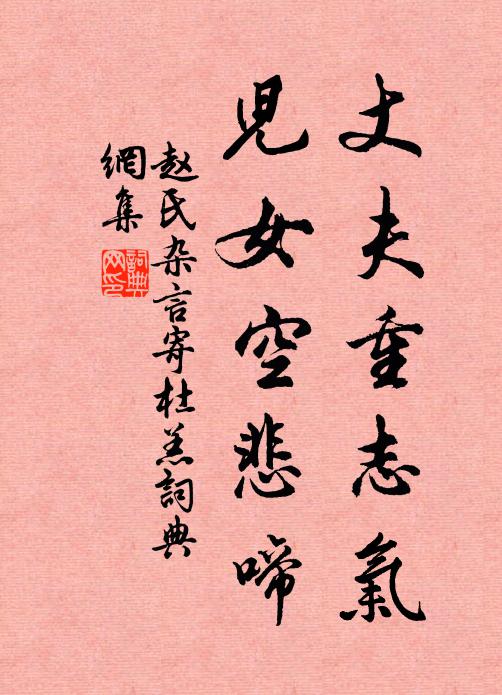 丈夫重志氣
兒女空悲啼
赵氏杂言寄杜羔詞典
網集
詞典
网印